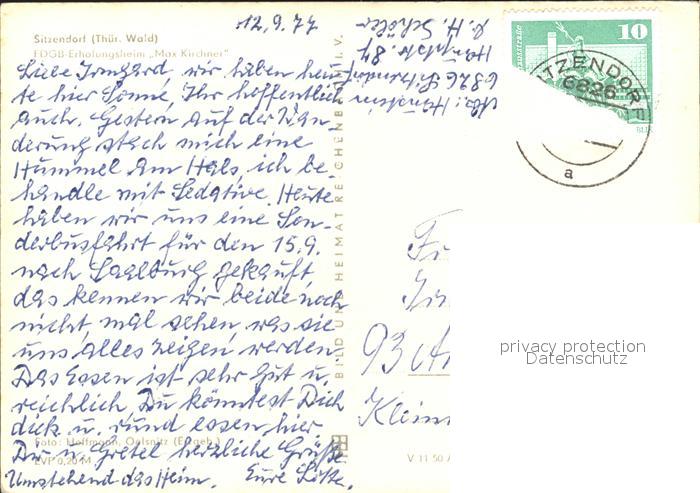 12.9.77
Sitzendorf (Thür. Wald)
FDGB-Erholungsheim „Max Kirchner"
Liebe Irmgard, wir haben heu-
te hier Sonne, Ihr hoffentlich
auch. Gestern auf der Wan-
derung stach mich eine
Hummel am Hals, ich be-
handle mit Sedative. Heute
haben wir uns eine Son-
derbusfahrt für den 15.9.
nach Saalburg gekauft,
das kennen wir beide noch
nicht, mal sehen, was sie
uns alles zeigen werden.
Das Essen ist sehr gut u.
reichlich, Du könntest Dich
dick u. rund essen hier.
Dir u. Gretel herzliche Grüße
Umstehend das Heim. Eure Lotte.
Foto: Hoffmann, Oelsnitz (Erzgeb.)
EVP 0,20 M
BILD UND HEIMAT REICHENBACH I. V.
V 11 50
L. H. Schöler
Hauptstr. 84
6826 Sitzendorf
10
SITZENDORF
6826
a
93
Klein
privacy protection
Datenschutz